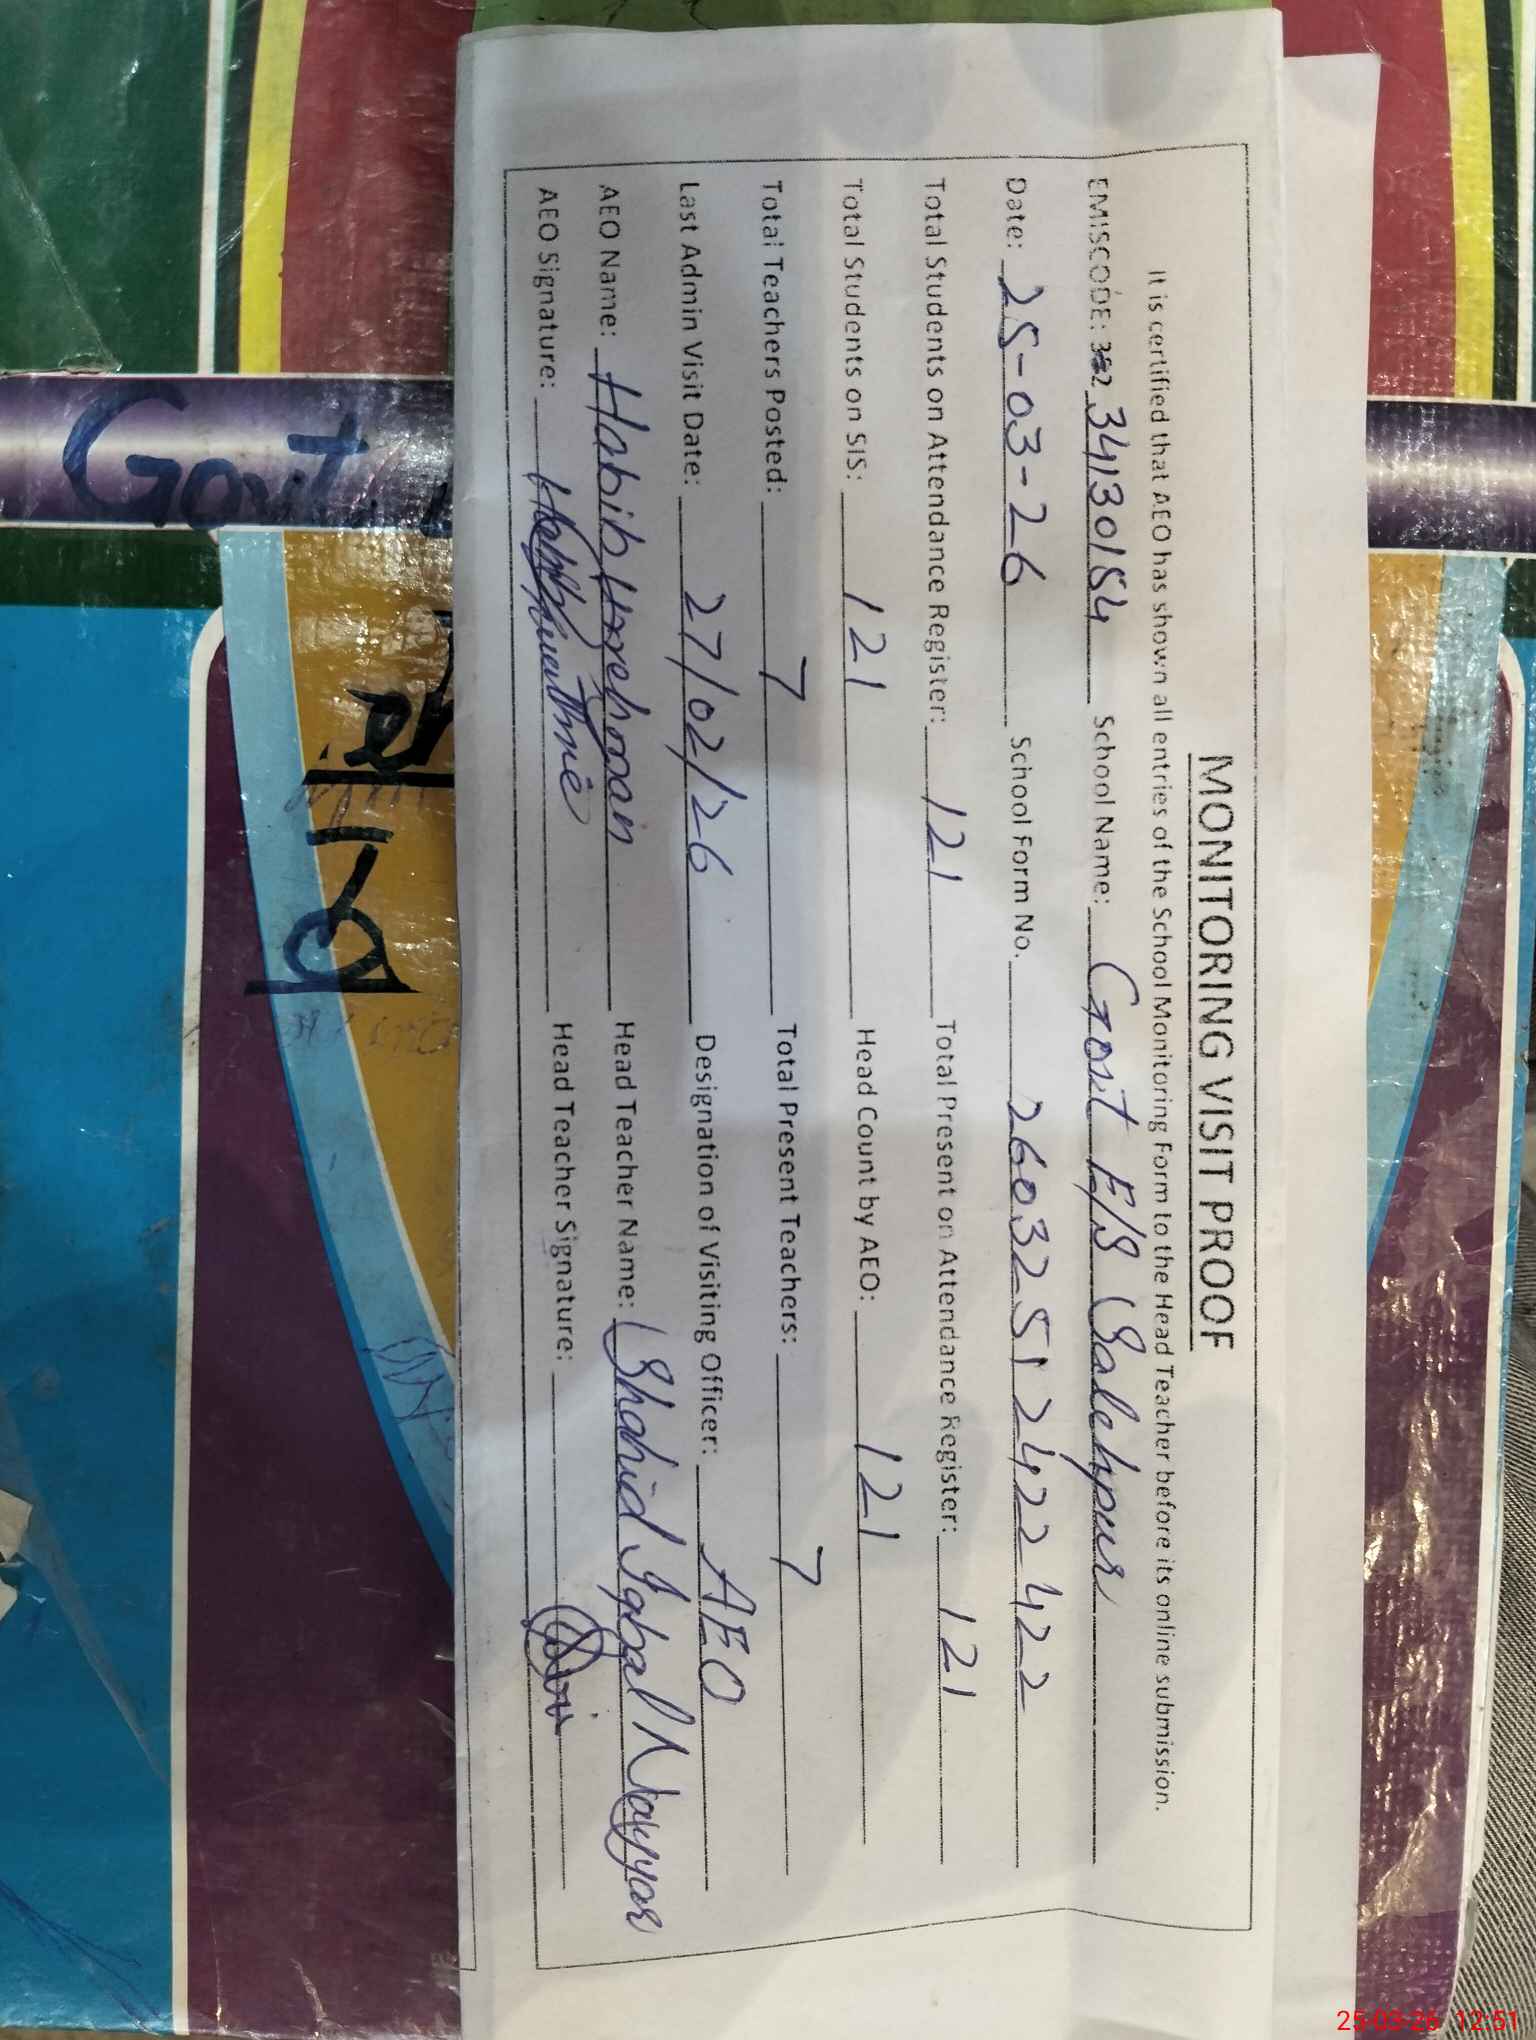 MONITORING VISIT PROOF
It is certified that AEO has shown all entries of the School Monitoring Form to the Head Teacher before its online submission.
EMISCODE: 34130154 School Name: Govt E/S Salehpur
Date: 25-03-26 School Form No. 2603251242242​2
Total Students on Attendance Register: 121 Total Present on Attendance Register: 121
Total Students on SIS: 121 Head Count by AEO: 121
Total Teachers Posted: 7 Total Present Teachers: 7
Last Admin Visit Date: 27/02/26 Designation of Visiting Officer: AEO
AEO Name: Habib Urrehman Head Teacher Name: Shahid Iqbal Nayyar
AEO Signature: Head Teacher Signature:
Govt
25-03-26 12:51